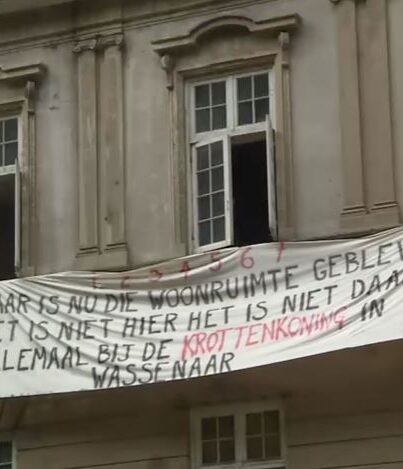 1 2 3 4 5 6 7
AAR IS NU DIE WOONRUIMTE GEBLEV
ET IS NIET HIER HET IS NIET DAA
LLEMAAL BIJ DE KROTTENKONING IN
WASSENAAR